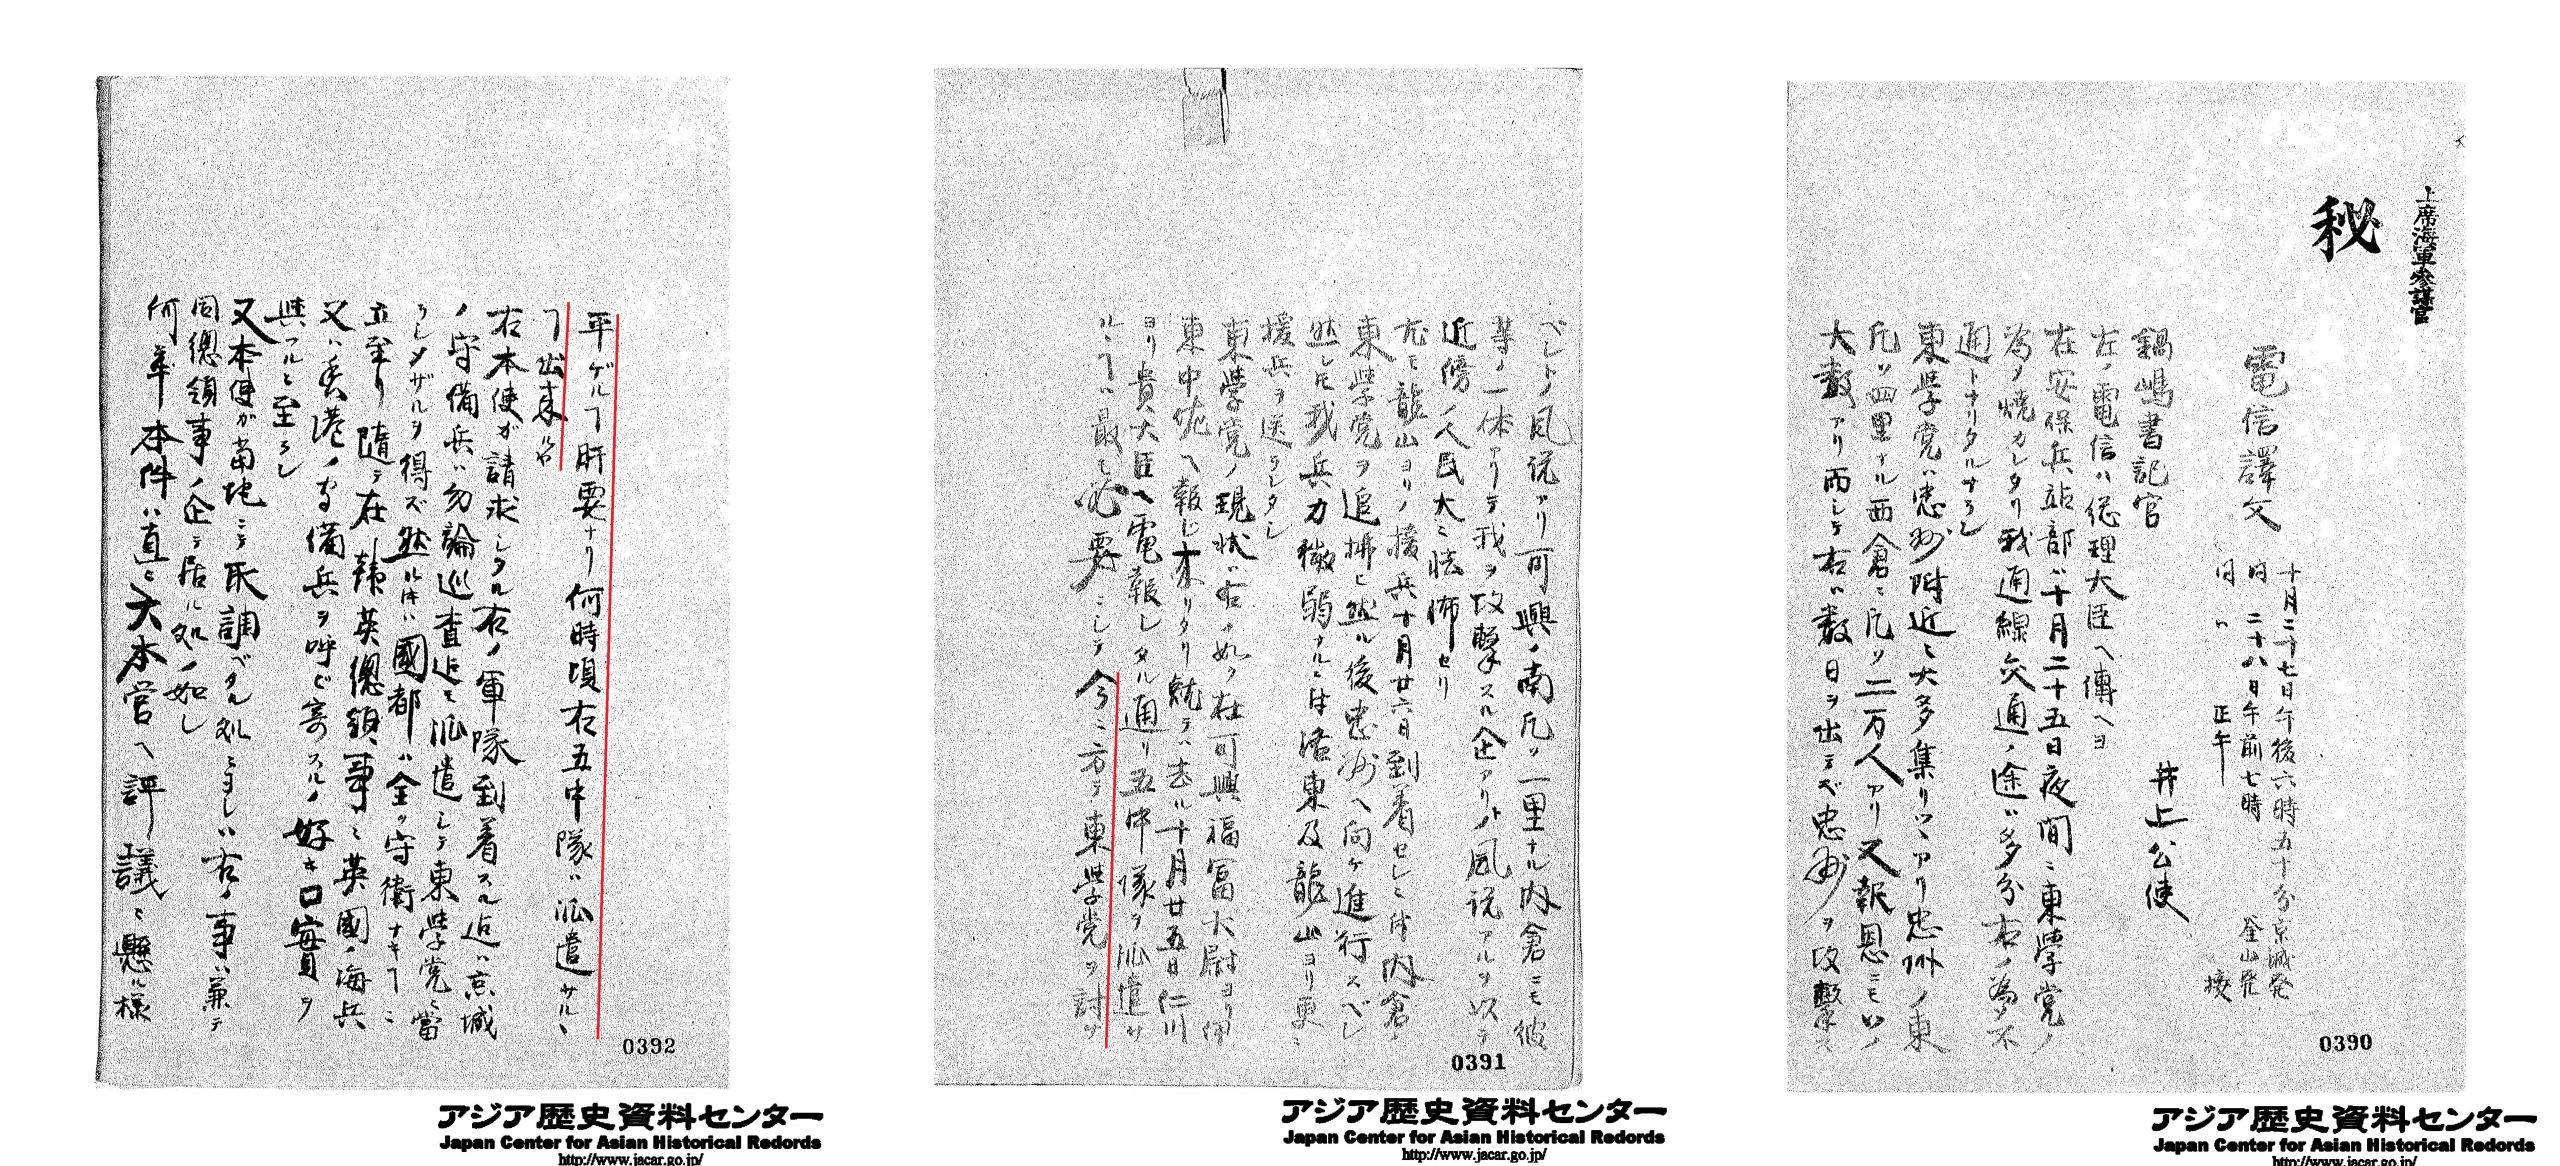 上席海軍参謀官
秘
電信譯文
十月二十七日午後六時五十分京城発
同 二十八日午前七時 釜山発
同 〃 正午 接
鍋嶋書記官
井上公使
左ノ電信ハ総理大臣ヘ傳ヘヨ
在安保兵站部ハ十月二十五日夜間ニ東學党ノ
為メ焼カレタリ我通線交通ノ途ハ多分右ノ為メ不
通トナリタルナラン
東學党ハ忠州附近ニ大多集リツヽアリ忠州ノ東
凡ソ四里ナル西倉ニ凡ソ二万人アリ又報恩ニモ
大数アリ而シテ右ハ数日ヲ出デズ忠州ヲ攻撃ス
0390
ベシトノ風説アリ可興ノ南凡ソ一里ナル内倉ニモ彼
等ノ一体アリテ我ヲ攻撃スル企アリトノ風説アルヲ以テ
近傍ノ人民大ニ怯怖セリ
尤モ龍山ヨリノ援兵十月廿六日到着セシニ付内倉ノ
東學党ヲ追拂ヒ然ル後忠州ヘ向ケ進行スベシ
然レ𪜈我兵力微弱ナルニ付洛東及龍山ヨリ更ニ
援兵ヲ送ラレタシ
東學党ノ現状ハ右ノ如ク在可興福冨大尉ヨリ伊
東中佐ヘ報じ来リタリ就テハ去ル十月廿五日仁川
ヨリ貴大臣ヘ電報シタル通リ五中隊ヲ派遣サ
ルヽヿハ最モ必要ニシテ今ニ方テ東學党ヲ討チ
0391
平ゲルヿ肝要ナリ何時頃右五中隊ハ派遣サルヽ
ヿ出来ルヤ
右本使ガ請求シタル右ノ軍隊到着スル迄ハ京城
ノ守備兵ハ勿論巡査迄モ派遣シテ東學党ニ當
ラシメザルヲ得ズ然ル時ハ國都ハ全ク守衛ナキヿニ
立至リ随テ在韓英總領事ニ英國ノ海兵
又ハ香港ノ守備兵ヲ呼ビ寄スルノ好キ口實ヲ
與フルニ至ラン
又本使ガ當地ニテ取調ベタル処ニヨレハ右ノ事ハ兼テ
同總領事ノ企テ居ル処ノ如シ
何卒本件ハ直ニ大本営ヘ評議ニ懸ル様
0392
アジア歴史資料センター
Japan Center for Asian Historical Redords
http://www.jacar.go.jp/
アジア歴史資料センター
Japan Center for Asian Historical Redords
http://www.jacar.go.jp/
アジア歴史資料センター
Japan Center for Asian Historical Redords
http://www.jacar.go.jp/